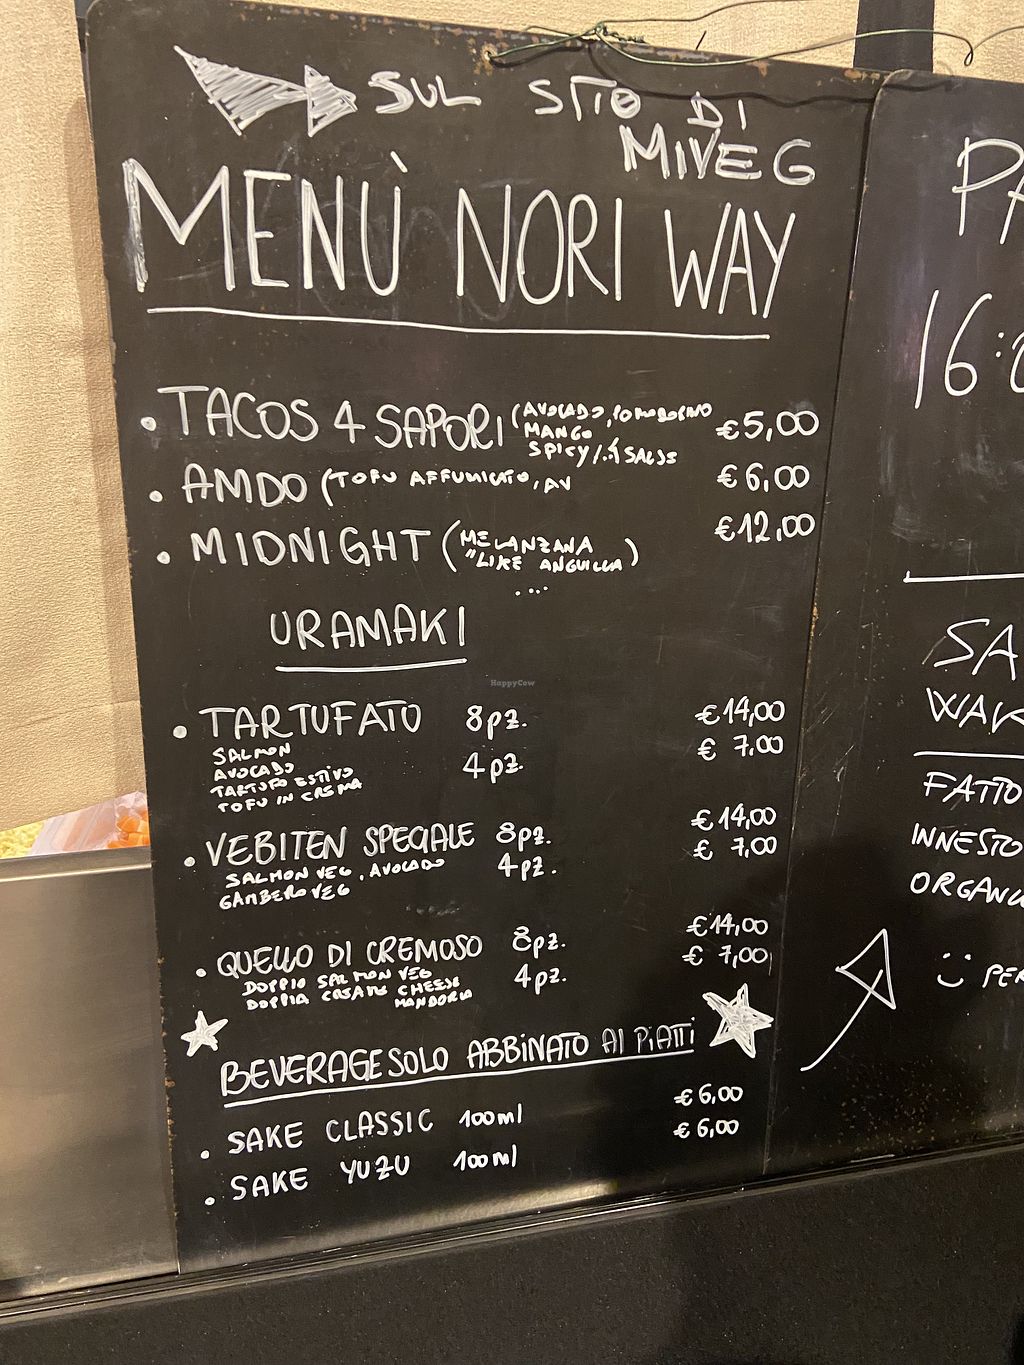 SUL SITO DI
MIVEG
MENÙ NORI WAY
• TACOS 4 SAPORI (AVOCADO, POMODORINO €5,00
MANGO
SPICY
• AMDO (TOFU AFFUMICATO, AV €6,00
• MIDNIGHT (MELANZANA €12,00
"LIKE ANGUILLA)
...
URAMAKI
• TARTUFATO 8pz. €14,00
SALMON
AVOCADO 4pz. €7,00
TARTUFO ESTIVO
TOFU IN CREMA
• VEBITEN SPECIALE 8pz. €14,00
SALMON VEG, AVOCADO 4pz. €7,00
GAMBERO VEG
• QUELLO DI CREMOSO 8pz. €14,00
DOPPIO SALMON VEG 4pz. €7,00
DOPPIA CREAM CHEESE
MANDORLA
BEVERAGE SOLO ABBINATO AI PIATTI
• SAKE CLASSIC 100ml €6,00
• SAKE YUZU 100ml €6,00
HappyCow
PA
16:0
SA
WAK
FATTO
INNESTO
ORGANI
:) PER